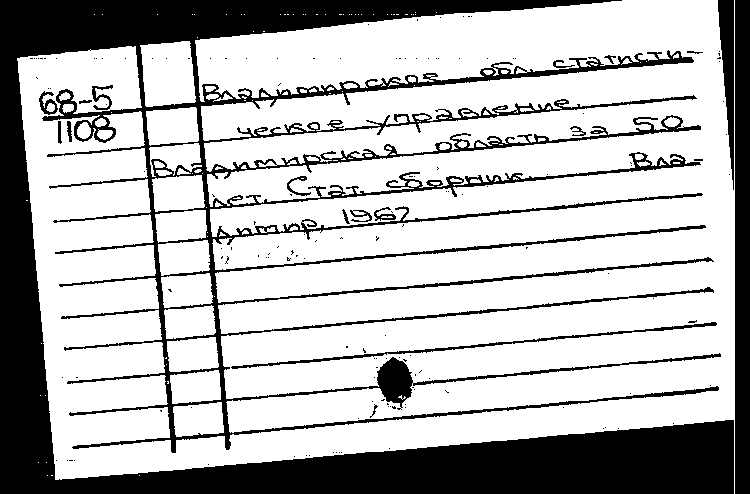 68-5
1108
Владимирское обл. статисти-
ческое управление.
Владимирская область за 50
лет. Стат. сборник. Вла-
димир, 1967.